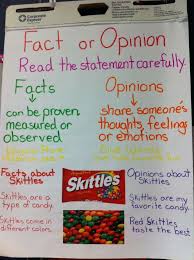 Corporate Express
Fact or Opinion
Read the statement carefully.
Facts
can be proven,
measured or
observed.
Opinions
share someone's
thoughts, feelings
or emotions
Facts about
Skittles
Skittles are a
type of candy.
Skittles come in
different colors.
Skittles
Opinions about
Skittles
Skittles are my
favorite candy.
Red Skittles
taste the best